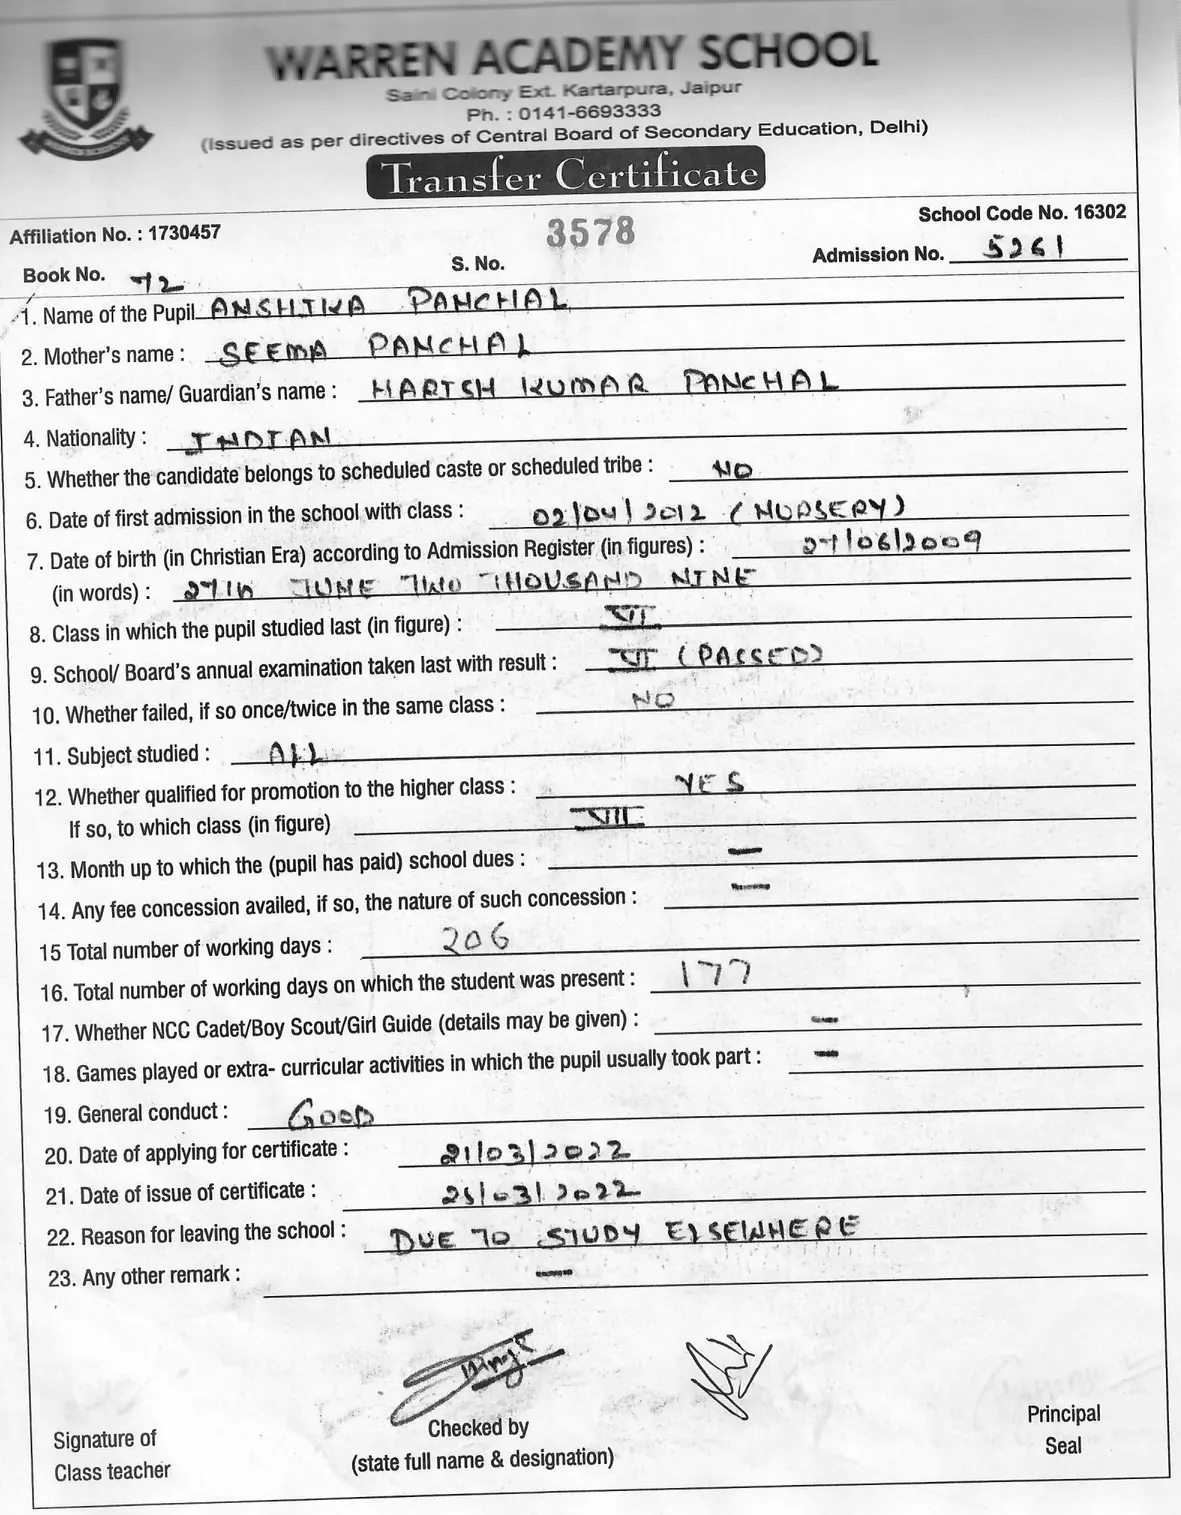 WARREN ACADEMY SCHOOL
Saini Colony Ext. Kartarpura, Jaipur
Ph. : 0141-6693333
(Issued as per directives of Central Board of Secondary Education, Delhi)
Transfer Certificate
Affiliation No. : 1730457 3578 School Code No. 16302
Book No. 72 S. No. Admission No. 5261
1. Name of the Pupil ANSHIKA PANCHAL
2. Mother's name : SEEMA PANCHAL
3. Father's name/ Guardian's name : HARISH KUMAR PANCHAL
4. Nationality : INDIAN
5. Whether the candidate belongs to scheduled caste or scheduled tribe : NO
6. Date of first admission in the school with class : 02/04/2012 (NURSERY)
7. Date of birth (in Christian Era) according to Admission Register (in figures) : 27/06/2009
(in words) : 27th JUNE TWO THOUSAND NINE
8. Class in which the pupil studied last (in figure) : VI
9. School/ Board's annual examination taken last with result : VI (PASSED)
10. Whether failed, if so once/twice in the same class : NO
11. Subject studied : ALL
12. Whether qualified for promotion to the higher class : YES
If so, to which class (in figure) VII
13. Month up to which the (pupil has paid) school dues : —
14. Any fee concession availed, if so, the nature of such concession : —
15 Total number of working days : 206
16. Total number of working days on which the student was present : 177
17. Whether NCC Cadet/Boy Scout/Girl Guide (details may be given) : —
18. Games played or extra- curricular activities in which the pupil usually took part : —
19. General conduct : GOOD
20. Date of applying for certificate : 21/03/2022
21. Date of issue of certificate : 25/03/2022
22. Reason for leaving the school : DUE TO STUDY ELSEWHERE
23. Any other remark : —
Signature of
Class teacher
Checked by
(state full name & designation)
Principal
Seal